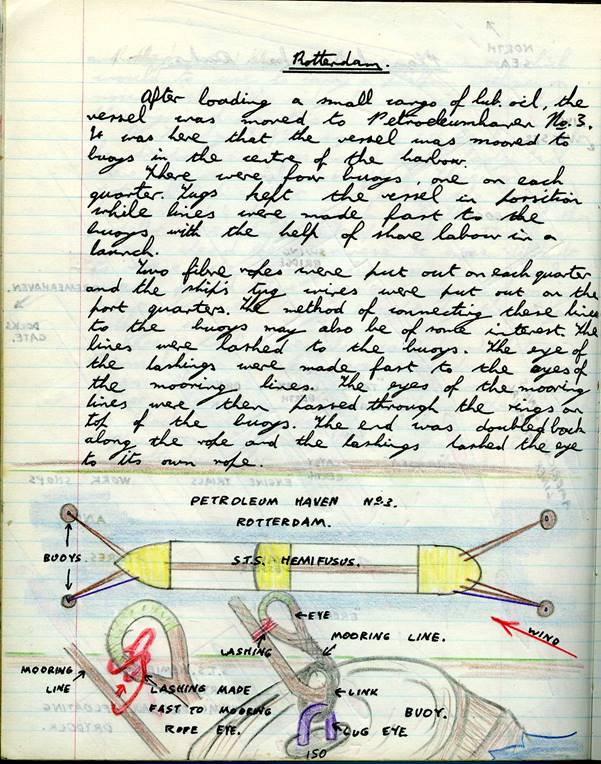 Rotterdam.
After loading a small cargo of lub. oil, the
vessel was moved to Petroleumhaven No. 3.
It was here that the vessel was moored to
buoys in the centre of the harbour.
There were four buoys, one on each
quarter. Tugs kept the vessel in possition
while lines were made fast to the
buoys, with the help of shore labour in a
launch.
Two fibre ropes were put out on each quarter
and the ship's tyg wires were put out on the
port quarters. The method of connecting these lines
to the buoys may also be of some interest. The
lines were lashed to the buoys. The eye of
the lashings were made fast to the eyes of
the mooring lines. The eyes of the mooring
lines were then passed through the rings on
top of the buoys. The end was doubled back
along the rope and the lashings lashed the eye
to its own rope.
PETROLEUM HAVEN No. 3.
ROTTERDAM.
BUOYS.
S.T.S. HEMIFUSUS.
WIND
EYE
LASHING
MOORING LINE.
MOORING
LINE
LASHING MADE
FAST TO MOORING
ROPE EYE.
LINK
BUOY.
LUG EYE
150